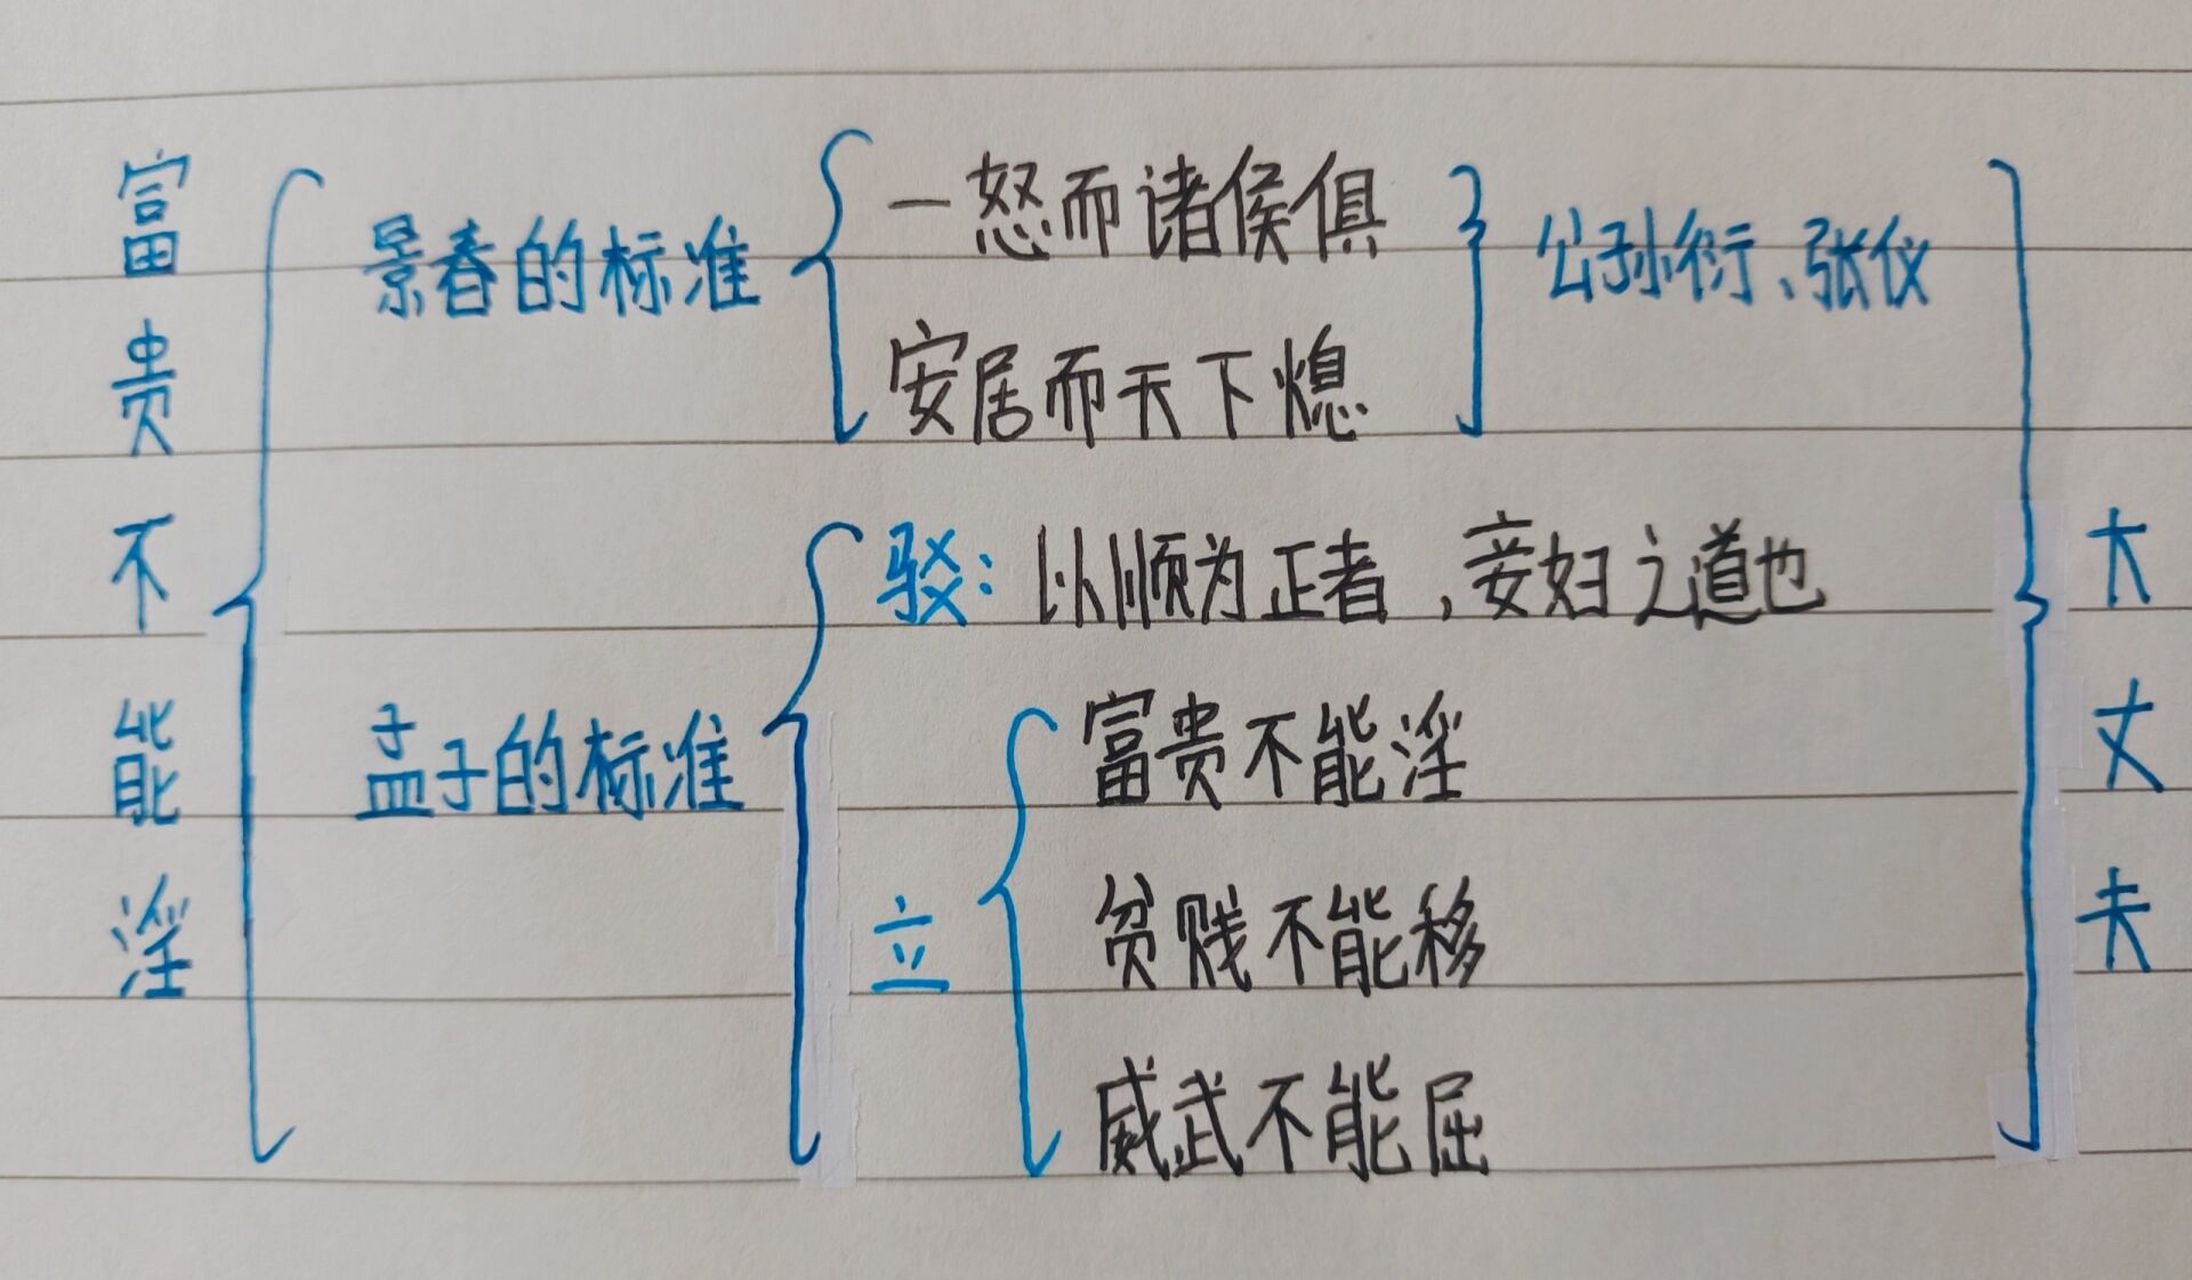 富贵不能淫
景春的标准
一怒而诸侯俱
安居而天下熄
公孙衍、张仪
孟子的标准
驳：以顺为正者，妾妇之道也
立
富贵不能淫
贫贱不能移
威武不能屈
大丈夫